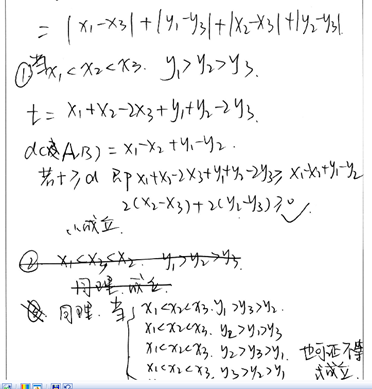 = |x₁-x₃|+|y₁-y₃|+|x₂-x₃|+|y₂-y₃|
①当x₁<x₂<x₃. y₁>y₂>y₃.
t= x₁+x₂-2x₃+y₁+y₂-2y₃.
d(A,B)= x₁-x₂+y₁-y₂.
若t≥d 即x₁+x₂-2x₃+y₁+y₂-2y₃≥x₁-x₂+y₁-y₂
2(x₂-x₃)+2(y₂-y₃)≥0
∴成立.
② x₁<x₃<x₂. y₁>y₂>y₃.
同理.成立
同理.当 x₁<x₂<x₃. y₁>y₃>y₂.
x₁<x₂<x₃. y₂>y₁>y₃
x₁<x₂<x₃. y₂>y₃>y₁. 也可证不等
x₁<x₂<x₃. y₃>y₂>y₁ 式成立.